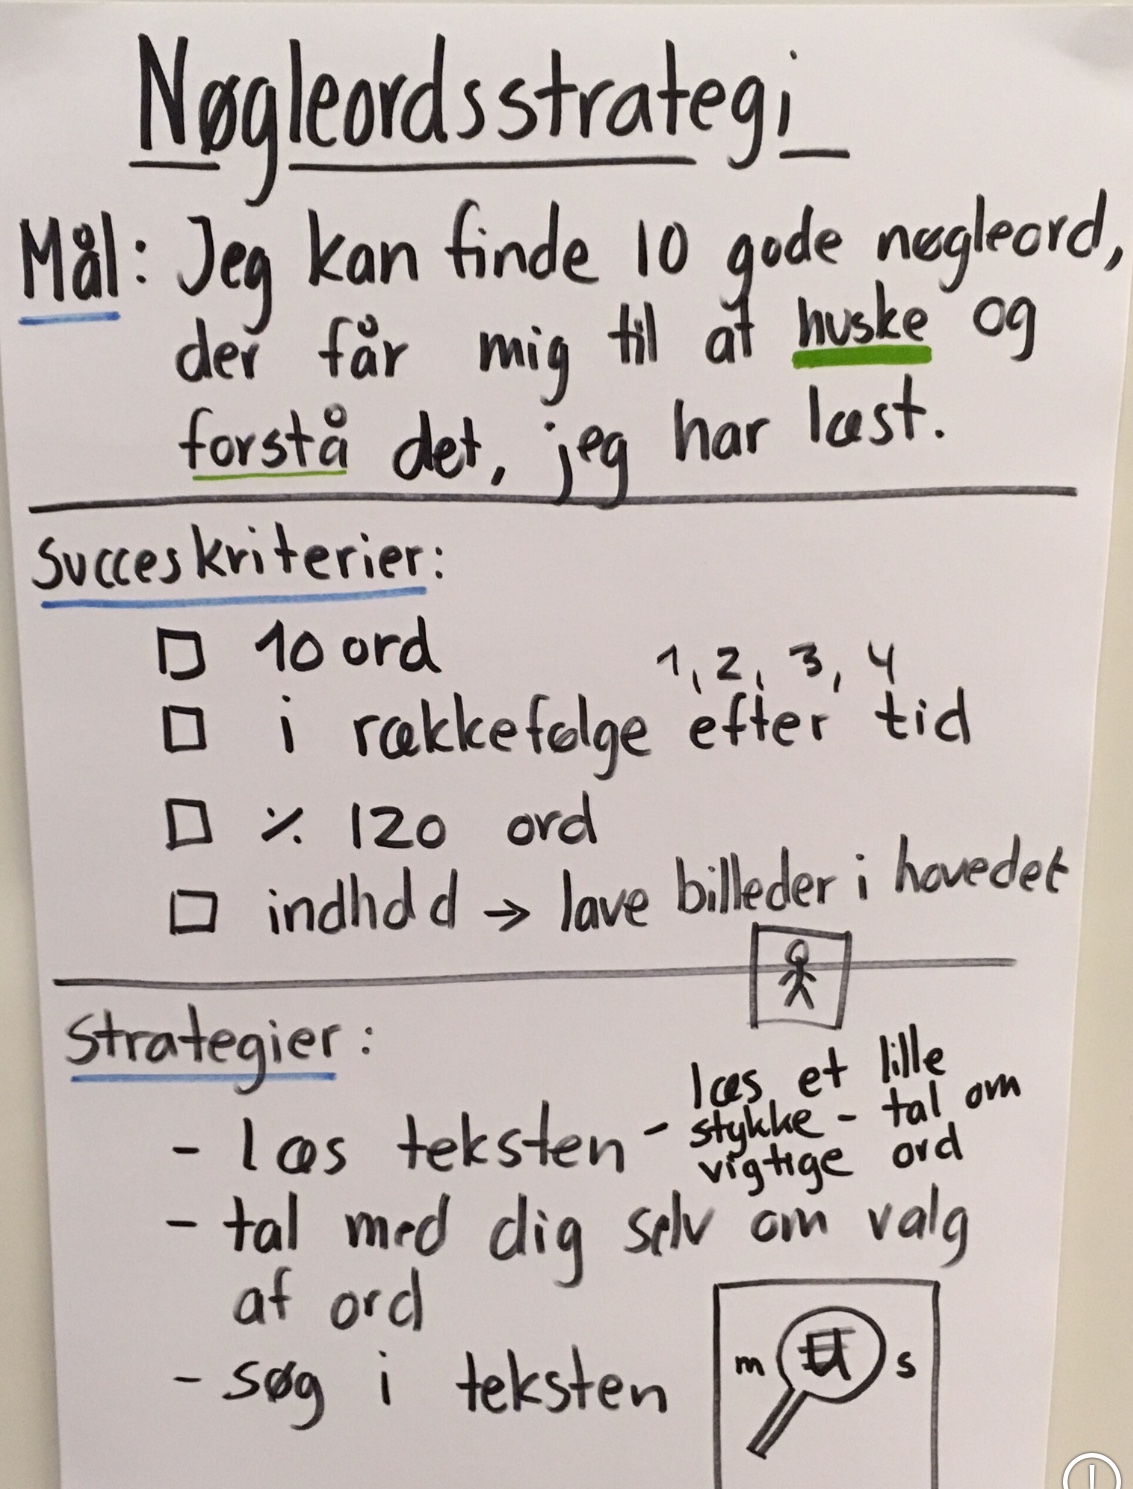 Nøgleordsstrategi
Mål: Jeg kan finde 10 gode nøgleord,
der får mig til at huske og
forstå det, jeg har læst.
Succeskriterier:
10 ord
1, 2, 3, 4
i rækkefølge efter tid
% 120 ord
indhold → lave billeder i hovedet
Strategier:
- læs teksten - læs et lille
stykke - tal om
vigtige ord
- tal med dig selv om valg
af ord
- søg i teksten
m s